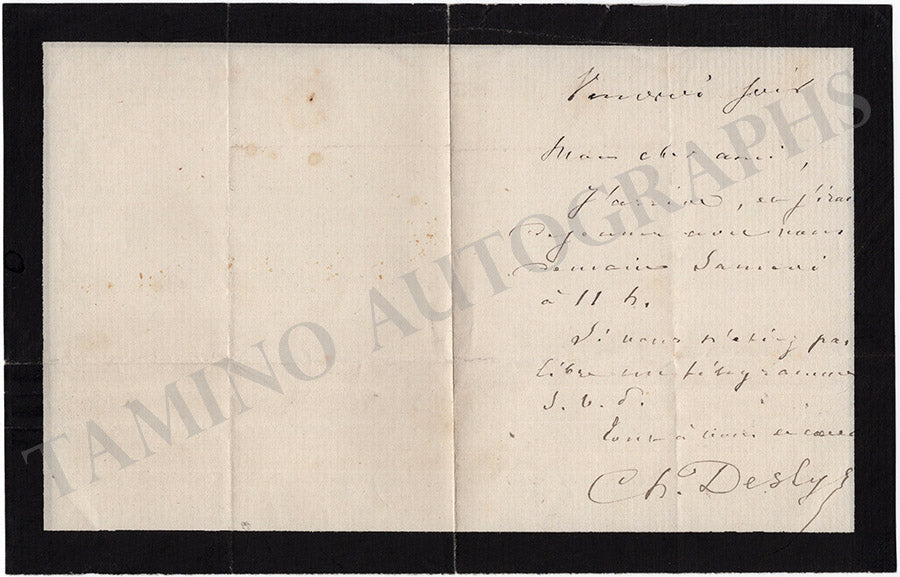 Vendredi soir
Mon cher ami,
J'arrive, et j'irai
déjeuner avec vous
demain Samedi
à 11 h.
Si vous n'étiez pas
libre un télégramme
S. v. p.
Tout à vous de cœur
Ch. Deslys
TAMINO AUTOGRAPHS